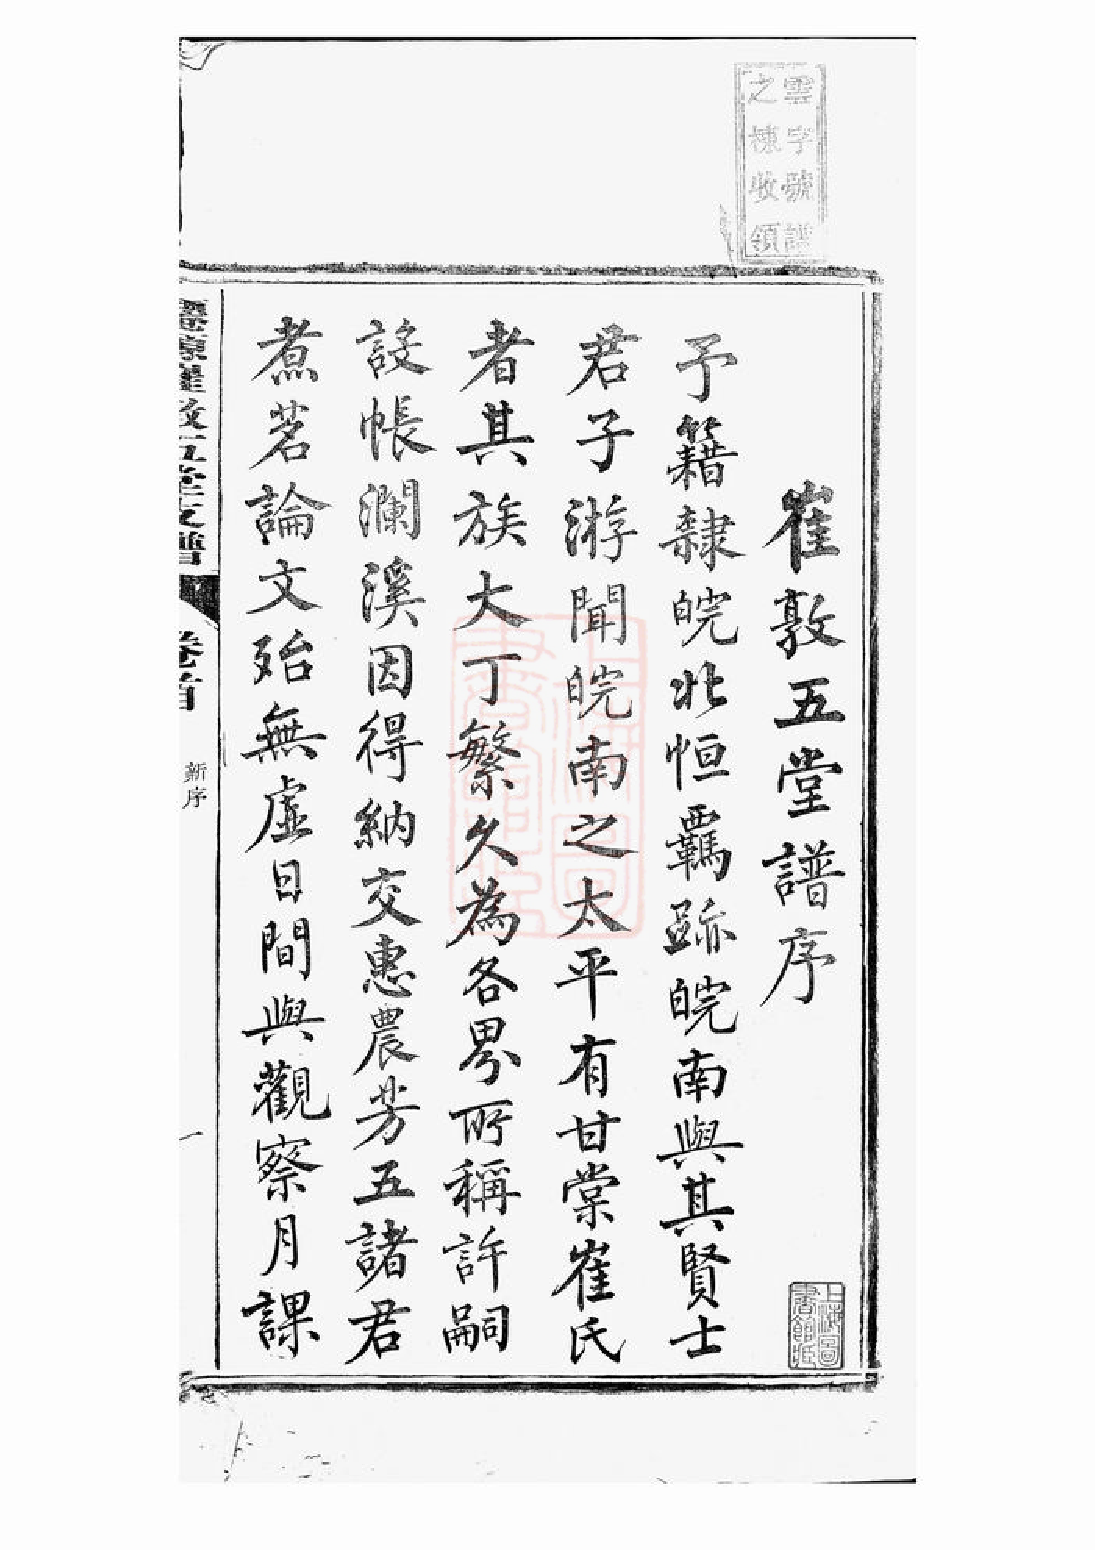 雲字號譜
之棟收領
崔敦五堂譜序
予籍隸皖北恒羈跡皖南與其賢士
君子游聞皖南之太平有甘棠崔氏
者其族大丁繁久為各界所稱許嗣
設帳瀾溪因得納交惠農芳五諸君
煮茗論文殆無虛日間與觀察月課
崔敦五堂支譜
卷首
新序
一
上海圖書館藏
上海圖書館藏